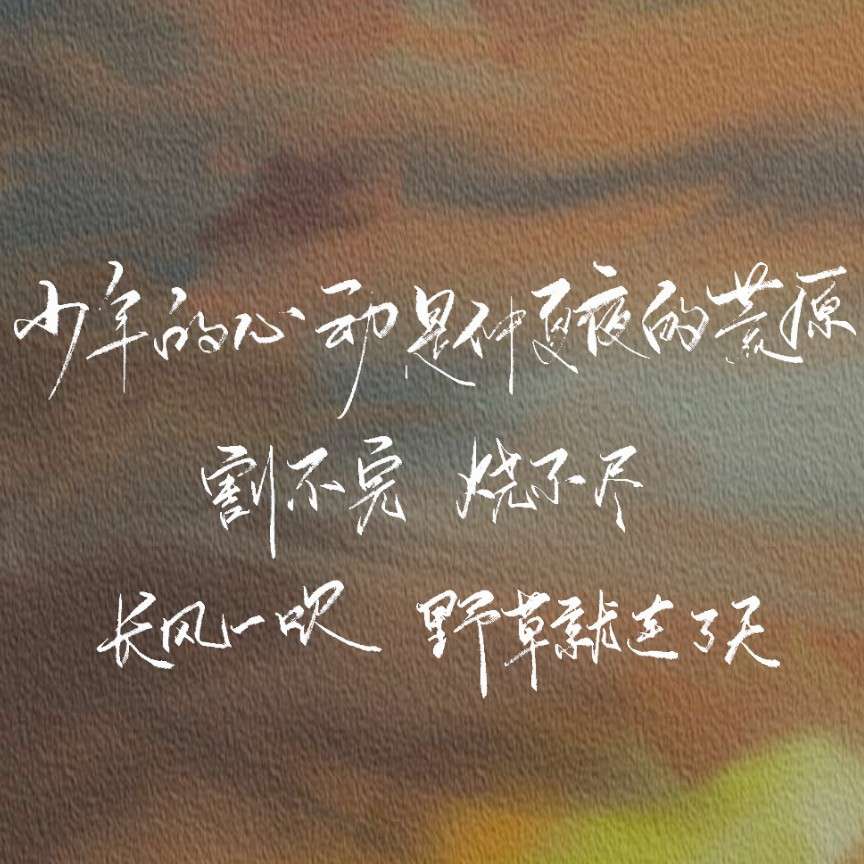 少年的心动是仲夏夜的荒原
割不完 烧不尽
长风一吹 野草就连了天